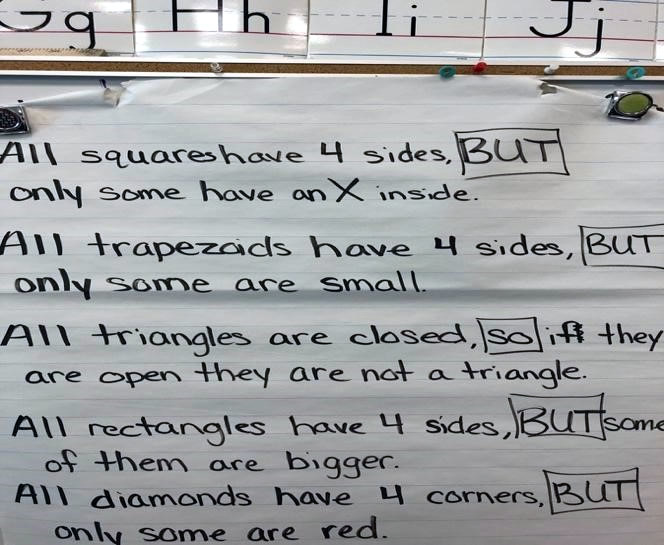 Gg Hh Ii Jj
All squares have 4 sides, BUT
only some have an X inside.
All trapezoids have 4 sides, BUT
only some are small.
All triangles are closed, so if they
are open they are not a triangle.
All rectangles have 4 sides, BUT some
of them are bigger.
All diamonds have 4 corners, BUT
only some are red.